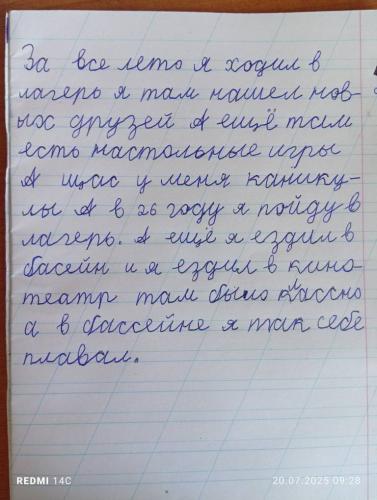 За все лето я ходил в
лагерь я там нашел нов-
ых друзей А ещё там
есть настольные игры
А щас у меня канику-
лы А в 26 году я пойду в
лагерь. А ещё я ездил в
басейн и я ездил в кино-
театр там было классно
а в бассейне я так себе
плавал.
REDMI 14C
20.07.2025 09:28